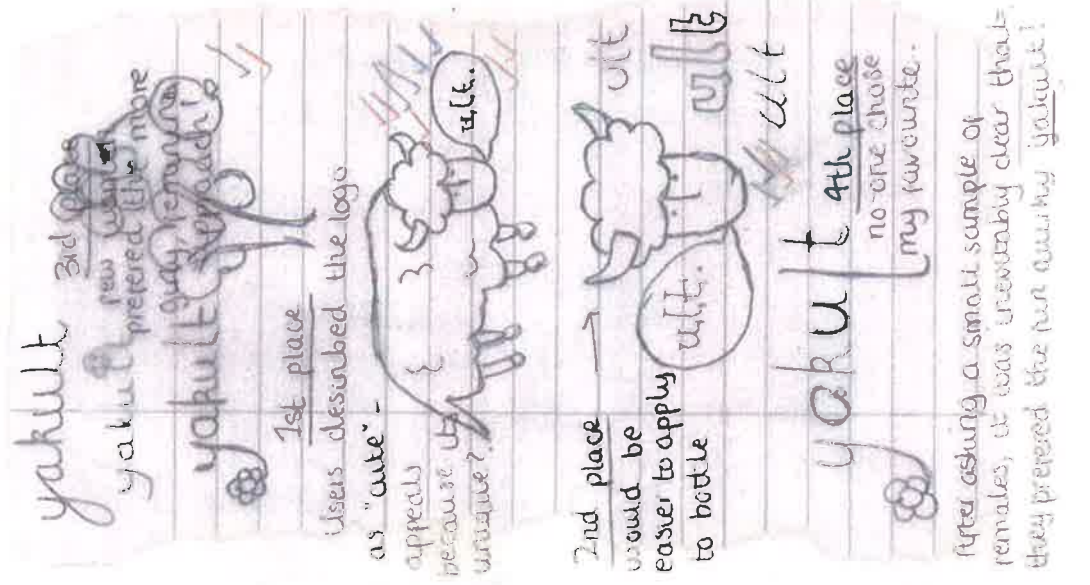 yakult
3rd place
yakult
few
prefered this more
girly feminine
approach!
yakult
1st place
Users desinbed the logo
as "cute" -
appeals
because its
unique?
u,l,t.
2nd place
would be
easier to apply
to bottle
u,l,t.
ult
ult
ult
yakult
4th place
no-one chose
my favourite.
After asking a small sample of
females, it was inevitably clear that
they prefered the fun quirky yakult!